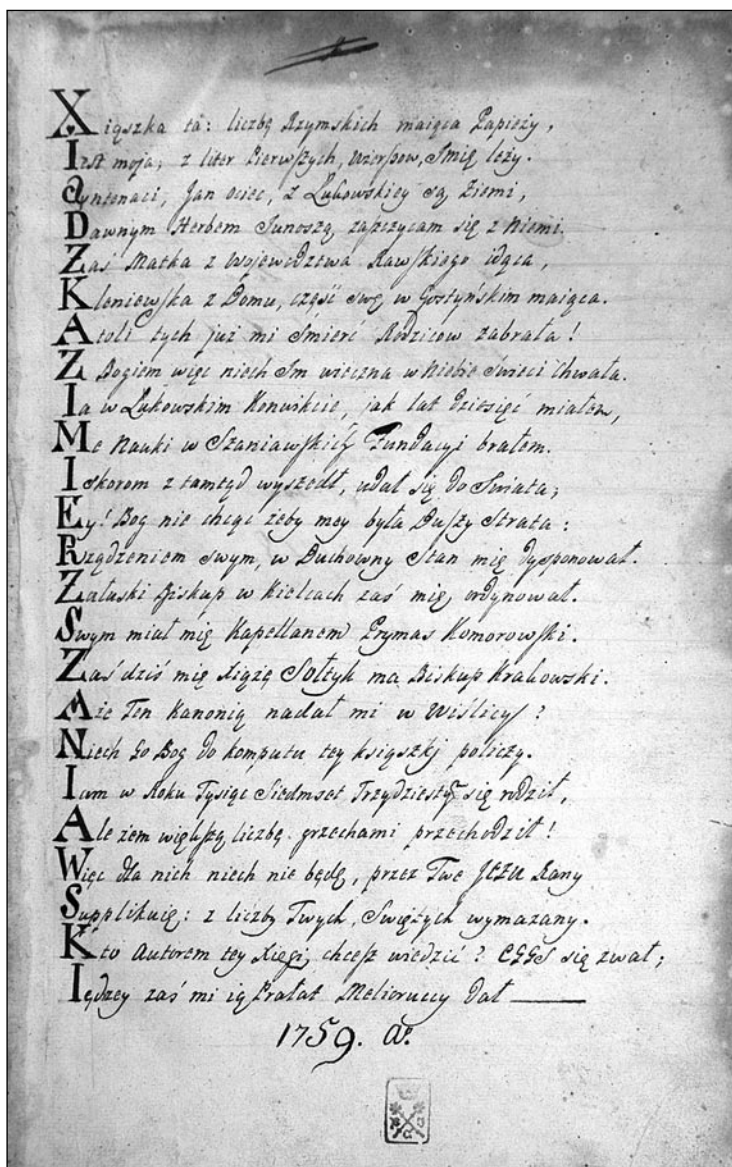 Xiąszka ta: liczbę Rzymskich maiąca Papieży,
Iest moja; z liter Pierwszych, wierszow, Imię leży.
Dawnym Herbem Junoszą zaszczycam się z Niemi.
Zaś Matka z Wojewodztwa Rawskiego idąca,
Kleniewska z Domu, część swą, w Gostyńskim maiąca.
Atoli tych już mi Smierć Rodzicow zabrała!
Z Bogiem więc niech Im wieczna w Niebie Swieci Chwała.
Ia w Łukowskim Konwikcie, jak lat dziesięć miałem,
Me Nauki w Szaniawskich Fundacyi brałem.
I skorom z tamtąd wyszedł, udał się do Swiata;
Ey! Bog nie chcąc żeby mey była Duszy Strata:
Rządzeniem swym, w Duchowny Stan mię dysponował.
Załuski Biskup w Kielcach zaś mię, ordynował.
Swym miał mię Kapellanem Prymas Komorowski.
Zaś dziś mię Xiążę Sołtyk ma Biskup Krakowski.
Aże Ten Kanonią nadał mi w Wiślicy/?
Niech Go Bog do komputu tey ksiąszki policzy.
Iam w Roku Tysiąc Siedmset Trzydziestym się rodził,
Ale żem większą liczbę grzechami przechodził!
Więc dla nich niech nie będę, przez Twe JEZU Rany
Supplikuię: z liczby Twych, Swiętych wymazany.
Kto Autorem tey Xięgi, chcesz wiedzić? CGGS się zwał;
Iędzey zaś mi ią Prałat Melioruccy Dał
1759. a.